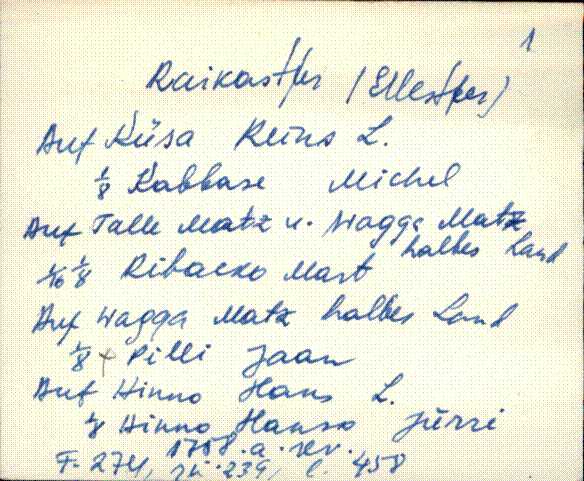 1
Raikastfer (Ellestfer)
Auf Küsa Reins L.
1/8 Kabbase Michel
Auf Talle Matz u. Wagga Matz
halbes Land
1/10 1/8 Ribacko Mart
Auf Wagga Matz halbes Land
1/8 + Pilli Jaan
Auf Hinno Hans L.
1/8 Hinno Hanso Jürri
1758. a. rev.
F. 274, n. 239, l. 458